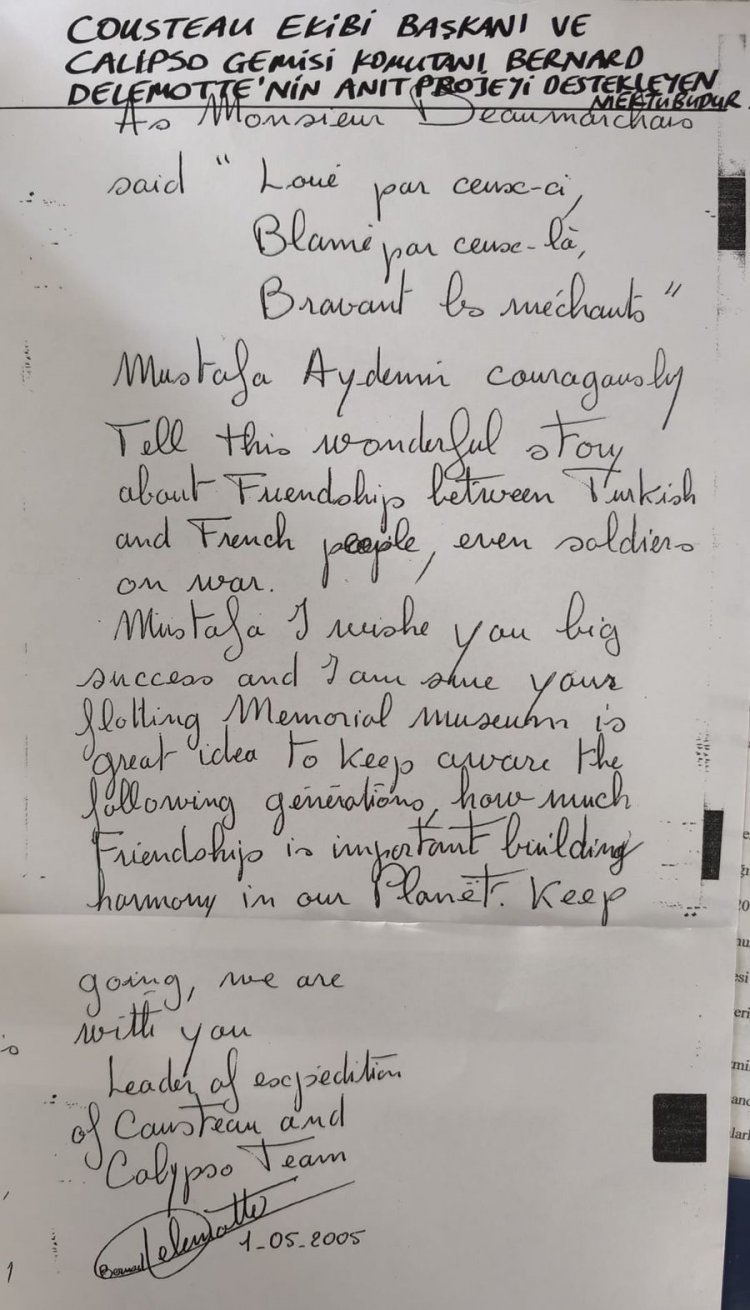 COUSTEAU EKİBİ BAŞKANI VE
CALIPSO GEMİSİ KOMUTANI BERNARD
DELEMOTTE'NİN ANIT PROJEYİ DESTEKLEYEN
MEKTUBUDUR
As Monsieur Beaumarchais
said " Loué par ceux-ci,
Blamé par ceux-là,
Bravant les méchants "
Mustafa Aydemir couragously
Tell this wonderful story
about Friendship between Turkish
and French people, even soldiers
on war.
Mustafa I wishe you big
success and I am sure your
flotting Memorial museum is
great idea to keep aware the
following générations, how much
Friendship is important building
harmony in our Planët. Keep
going, we are
with you
Leader of expédition
of Cousteau and
Calypso Team
Bernard Delemotte
1-05-2005